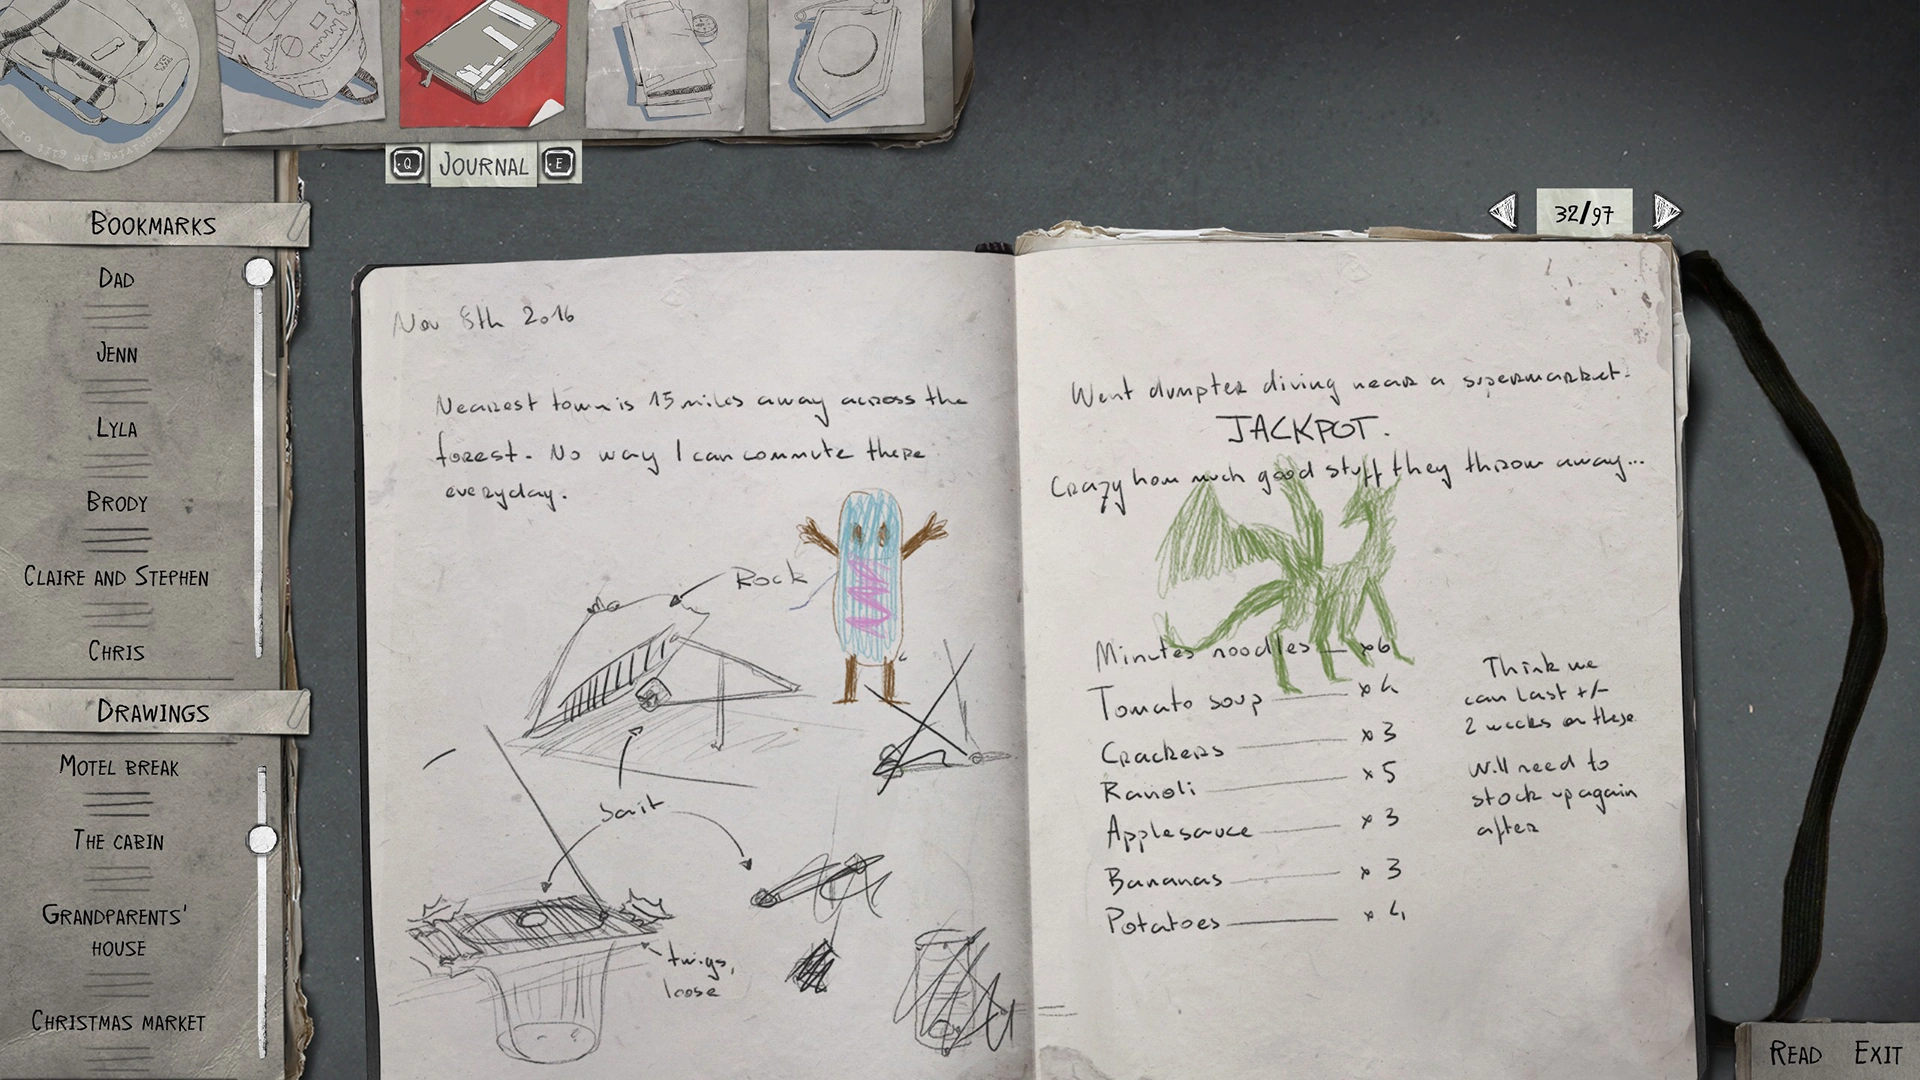 JOURNAL
Q
E
32/97
BOOKMARKS
DAD
JENN
LYLA
BRODY
CLAIRE AND STEPHEN
CHRIS
DRAWINGS
MOTEL BREAK
THE CABIN
GRANDPARENTS'
HOUSE
CHRISTMAS MARKET
Nov 8th 2016
Nearest town is 15 miles away across the
forest. No way I can commute there
everyday.
Rock
bait
twigs,
loose
Went dumpter diving near a supermarket.
JACKPOT.
Crazy how much good stuff they throw away...
Minutes noodles x6
Tomato soup x4
Crackers x3
Ravioli x5
Applesauce x3
Bananas x3
Potatoes x4
Think we
can last +/-
2 weeks on these
Will need to
stock up again
after
READ
EXIT